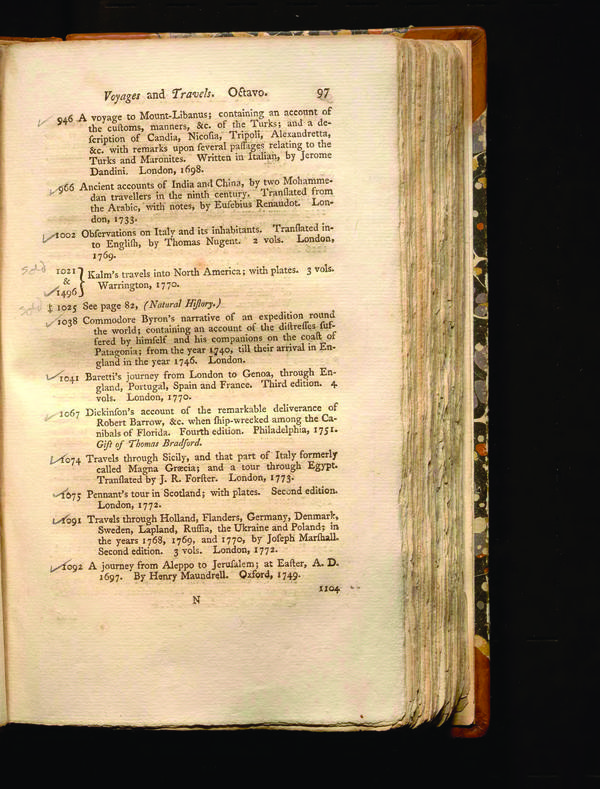 Voyages and Travels. Octavo. 97
946 A voyage to Mount-Libanus; containing an account of
the cuſtoms, manners, &c. of the Turks; and a de-
ſcription of Candia, Nicoſia, Tripoli, Alexandretta,
&c. with remarks upon ſeveral paſſages relating to the
Turks and Maronites. Written in Italian, by Jerome
Dandini. London, 1698.
966 Ancient accounts of India and China, by two Mohamme-
dan travellers in the ninth century. Tranſlated from
the Arabic, with notes, by Euſebius Renaudot. Lon-
don, 1733.
1002 Obſervations on Italy and its inhabitants. Tranſlated in-
to Engliſh, by Thomas Nugent. 2 vols. London,
1769.
sold 1021
& } Kalm's travels into North America; with plates. 3 vols.
1496 Warrington, 1770.
sold ‡ 1025 See page 82, (Natural Hiſtory.)
1038 Commodore Byron's narrative of an expedition round
the world; containing an account of the diſtreſſes ſuf-
fered by himſelf and his companions on the coaſt of
Patagonia; from the year 1740, till their arrival in En-
gland in the year 1746. London.
1041 Baretti's journey from London to Genoa, through En-
gland, Portugal, Spain and France. Third edition. 4
vols. London, 1770.
1067 Dickinſon's account of the remarkable deliverance of
Robert Barrow, &c. when ſhip-wrecked among the Ca-
nibals of Florida. Fourth edition. Philadelphia, 1751.
Gift of Thomas Bradford.
1074 Travels through Sicily, and that part of Italy formerly
called Magna Græcia; and a tour through Egypt.
Tranſlated by J. R. Forſter. London, 1773.
1075 Pennant's tour in Scotland; with plates. Second edition.
London, 1772.
1091 Travels through Holland, Flanders, Germany, Denmark,
Sweden, Lapland, Ruſſia, the Ukraine and Poland; in
the years 1768, 1769, and 1770, by Joſeph Marſhall.
Second edition. 3 vols. London, 1772.
1092 A journey from Aleppo to Jeruſalem; at Eaſter, A. D.
1697. By Henry Maundrell. Oxford, 1749.
1104
N